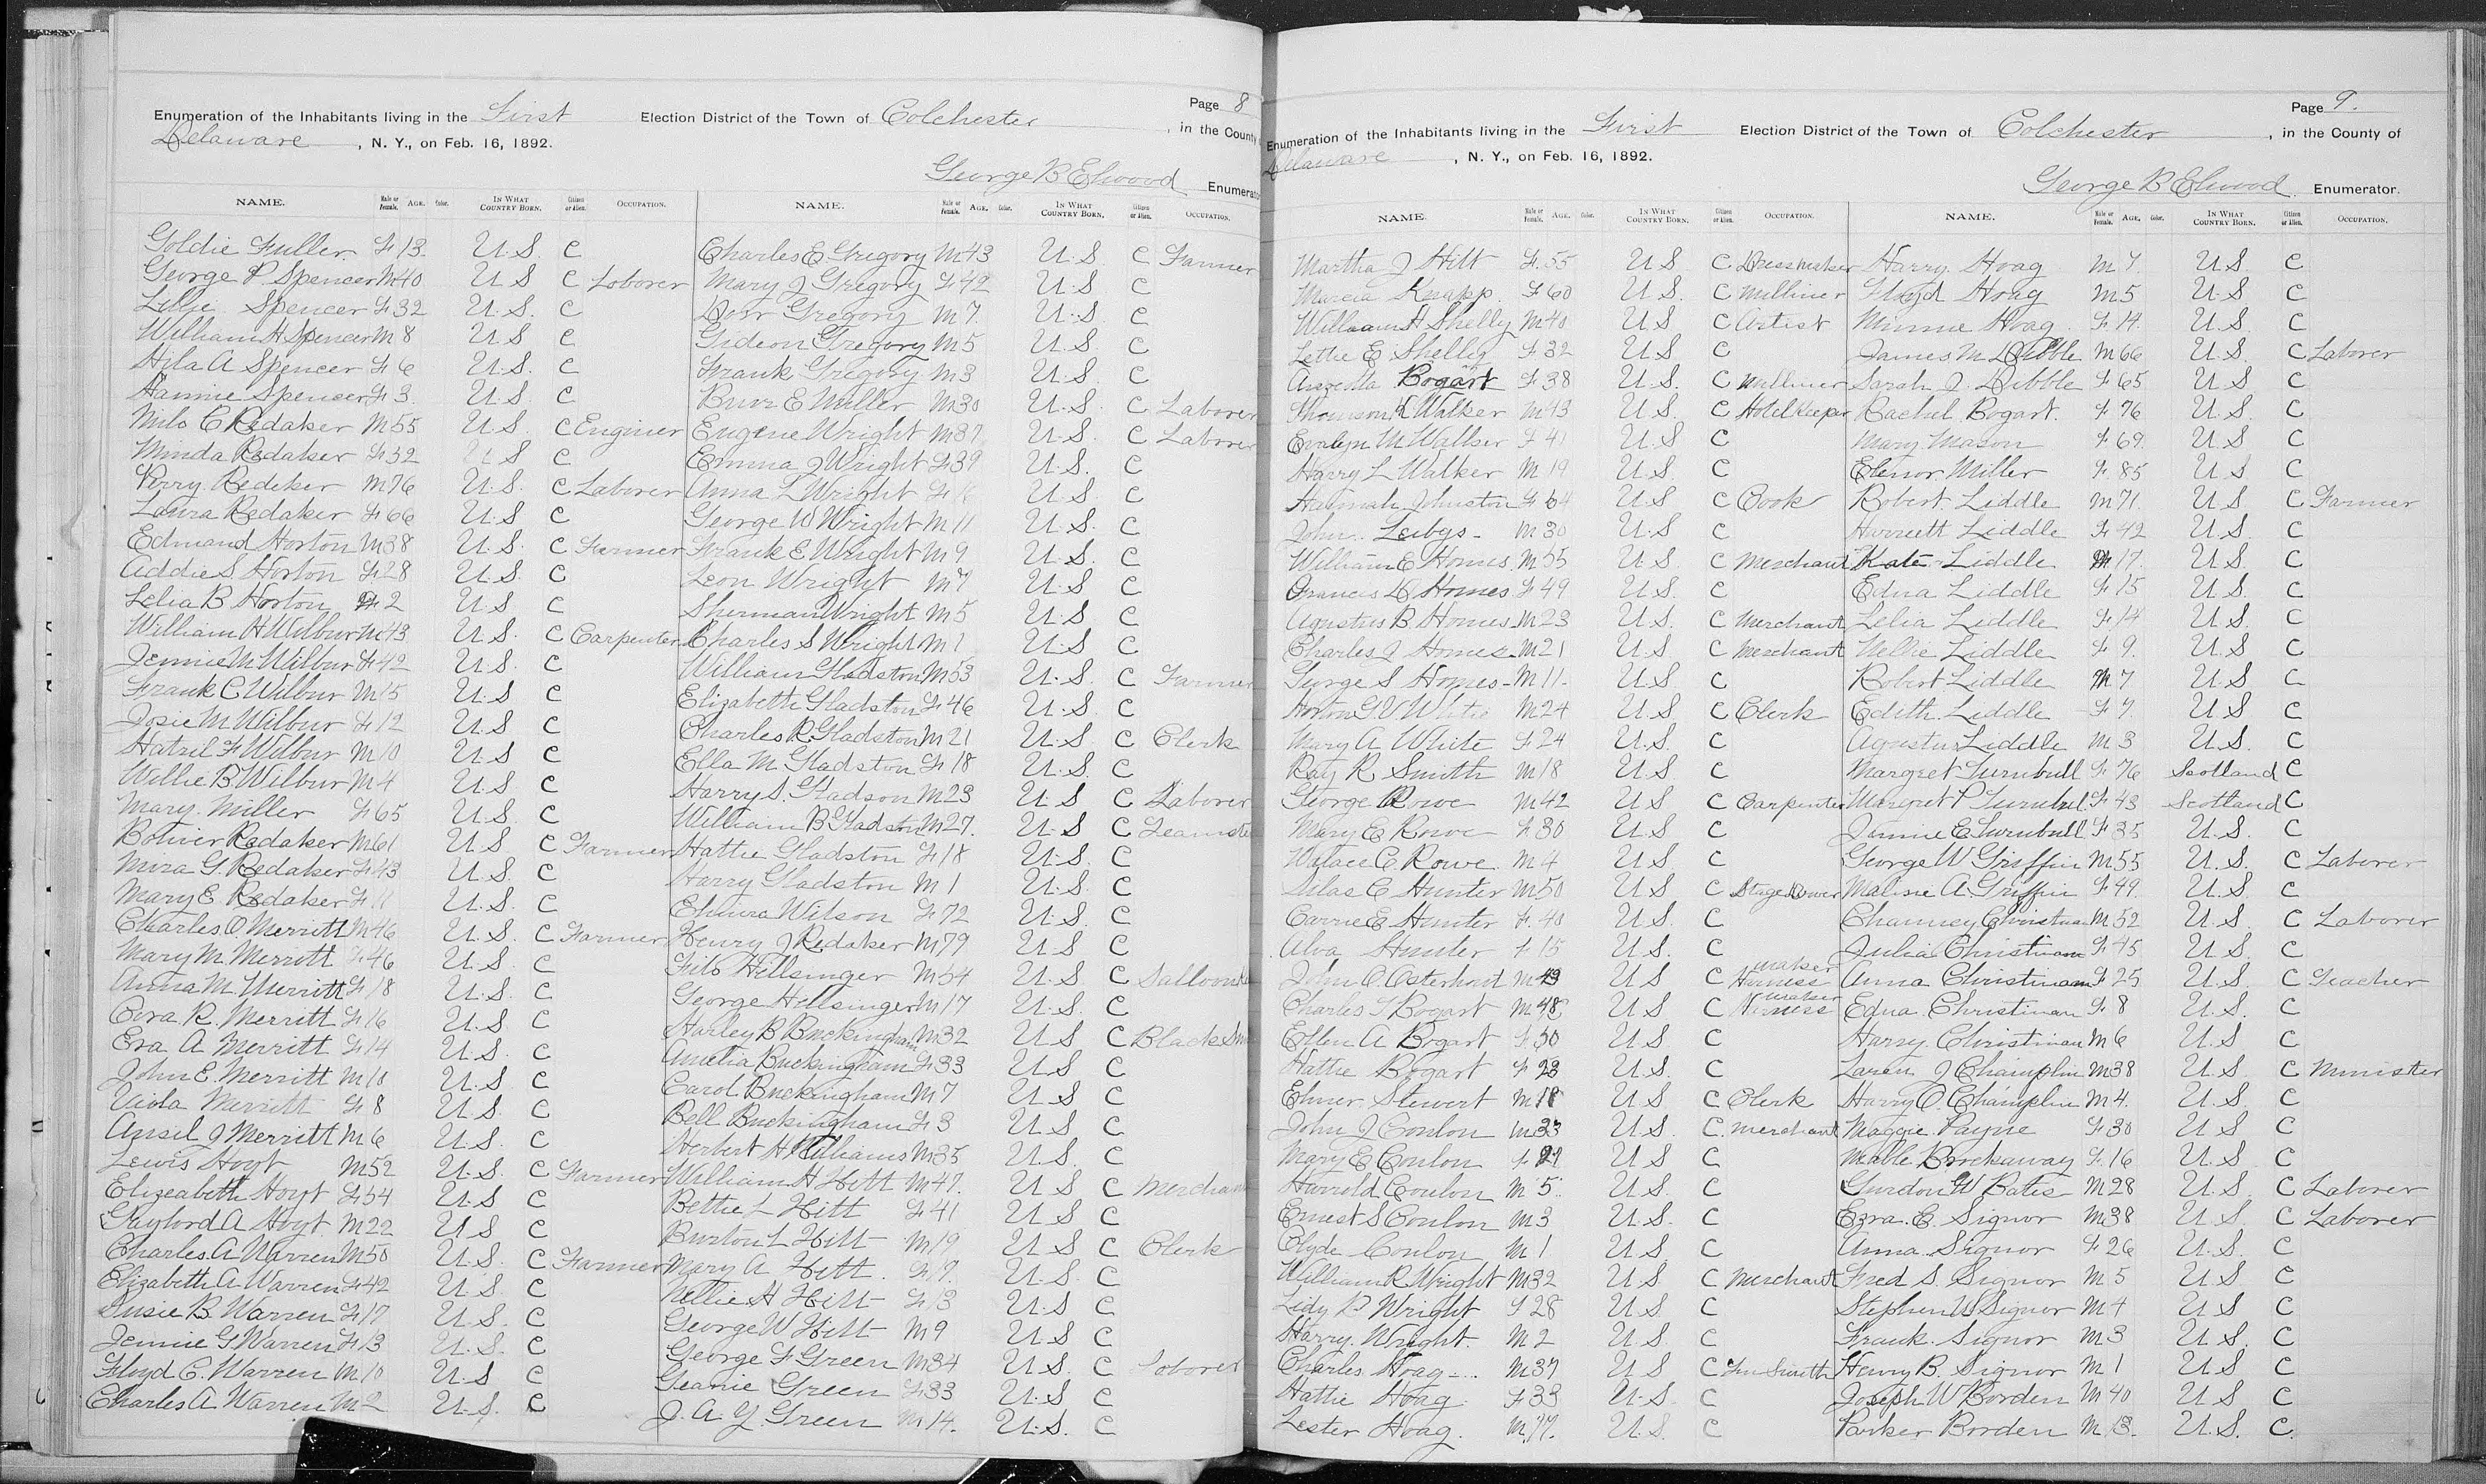 Page 8
Enumeration of the Inhabitants living in the First Election District of the Town of Colchester, in the County
Delaware, N. Y., on Feb. 16, 1892.
George B Elwood Enumerator
NAME. Male or Female. AGE. Color. IN WHAT COUNTRY BORN. Citizen or Alien. OCCUPATION. NAME. Male or Female. AGE. Color. IN WHAT COUNTRY BORN. Citizen or Alien. OCCUPATION.
Goldie Fuller F 13 U.S. C
George P Spencer M 40 U S C Laborer
Lillie Spencer F 32 U.S. C
William H Spencer M 8 U S C
Hila A Spencer F 6 U.S. C
Hannie Spencer F 3 U.S. C
Milo C Redaker M 55 U S C Enginer
Minda Redaker F 32 U S C
Perry Redeker M 76 U.S. C Laborer
Laura Redaker F 66 U.S C
Edmand Horton M 38 U.S. C Farmer
Addie S Horton F 28 U.S C
Lelia B Horton F 2 U.S C
William H Wilbur M 43 U.S. C Carpenter
Jennie M Wilbur F 42 U.S. C
Frank C Wilbur M 15 U.S C
Josie M Wilbur F 12 U.S C
Hatzel F Wilbur M 10 U S C
Willie B Wilbur M 4 U.S C
Mary Miller F 65 U.S. C
Boliver Redaker M 61 U S C Farmer
Mira G. Redaker F 43 U.S. C
Mary E Redaker F 11 U.S. C
Charles O Merritt M 46 U.S. C Farmer
Mary M Merritt F 46 U.S. C
Anna M Merritt F 18 U.S. C
Cora R. Merritt F 16 U.S C
Eva A Merritt F 14 U.S. C
John E Merritt M 10 U.S C
Viola Merritt F 8 U.S. C
Ansel J Merritt M 6 U.S. C
Lewis Hoyt M 52 U.S. C Farmer
Elizeabeth Hoyt F 54 U S C
Gaylord A Hoyt M 22 U S C
Charles A Warren M 50 U.S. C Farmer
Elizabeth A Warren F 42 U.S. C
Susie B Warren F 17 U.S. C
Jennie G Warren F 13 U.S. C
Floyd C. Warren M 10 U.S C
Charles A Warren M 2 U.S. C
Charles E Gregory M 43 U.S C Farmer
Mary J Gregory F 42 U.S C
Dorr Gregory M 7 U.S C
Gideon Gregory M 5 U.S. C
Frank Gregory M 3 U.S. C
Burr E Miller M 30 U.S. C Laborer
Eugene Wright M 37 U.S. C Laborer
Emma J Wright F 39 U.S. C
Anna L Wright F U.S. C
George W Wright M 11 U.S. C
Frank E Wright M 9 U.S. C
Leon Wright M 7 U.S C
Sherman Wright M 5 U.S C
Charles S Wright M 1 U.S C
William Gladston M 53 U.S C Farmer
Elizabeth Gladston F 46 U.S. C
Charles R Gladston M 21 U.S. C Clerk
Ella M Gladston F 18 U.S. C
Harry S. Gladson M 23 U.S C Laborer
William B Gladston M 27. U.S C Teamste
Hattie Gladston F 18 U.S. C
Harry Gladston M 1 U.S. C
Elmira Wilson F 72 U.S. C
Henry J Redaker M 79 U S C
Filo Hillsinger M 54 U.S C
George Hillsinger M 17 U.S. C
Harley B Buckingham M 32 U S C Black Sm
Amelia Buckingham F 33 U.S C
Carol Buckingham M 7 U S C
Bell Buckingham F 3 U.S C
Herbert H Williams M 35 U.S. C
William H Hitt M 47. U.S C Merchan
Bettie L Hitt F 41 U S C
Burton L Hitt M 19 U S C Clerk
Mary A Hitt F 17. U.S. C
Nellie H Hitt F 13 U.S C
George W Hitt M 9 U S C
George F Green M 34 U S. C Laborer
Geanie Green F 33 U.S C
J. A. Y. Green M 14. U.S. C
Page 9.
Enumeration of the Inhabitants living in the First Election District of the Town of Colchester, in the County of
Delaware, N. Y., on Feb. 16, 1892.
George B Elwood Enumerator.
NAME. Male or Female. AGE. Color. IN WHAT COUNTRY BORN. Citizen or Alien. OCCUPATION. NAME. Male or Female. AGE. Color. IN WHAT COUNTRY BORN. Citizen or Alien. OCCUPATION.
Martha J Hitt F 55 U S C Dressmaker
Marcia Knapp F 60 U S. C Milliner
William H Shelly M 40 U S C Artist
Lettie E Shelley F 32 U S C
Bogart F 38 U S. C Milliner
Thomson K Walker M 43 U S. C Hotel Keeper
Evalyn M Walker F 41 U S C
Harry L Walker M 19 U S. C
Hannah Johnston F 64 U S C Cook
John M 30 U S C
William E Homes M 55 U S C Merchant
Francis D Homes F 49 U S. C
Agustus B Homes M 23 U S. C Merchant
Charles J Homes M 21 U S C Merchant
George S Homes M 11 U S C
Horton G V White M 24 U S C Clerk
Mary A White F 24 U.S. C
Ray R Smith M 18 U S C
George Rowe M 42 U S C Carpenter
Mary E Rowe F 30 U S C
Walace C. Rowe M 4 U S C
Silas C Hunter M 50 U S C Stage Driver
Carrie E Hunter F 40 U S. C
Alva Hunter F 15 U S. C
John O Osterhout M 43 U S C Harness maker
Charles T Bogart M 48 U S C Harness maker
Ellen A Bogart F 50 U S C
Hattie Bogart F 23 U S. C
Elmer Stewert M 18 U S C Clerk
John J Conlon M 33 U S C Merchant
Mary E Conlon F 29 U S C
Harrold Conlon M 5 U S C
Ernest S Conlon M 3 U S. C
Clyde Conlon M 1 U S C
William R Wright M 32 U S C Merchant
Lidy P Wright F 28 U S C
Harry Wright. M 2 U S C
Charles Hoag M 37 U S C Tin Smith
Hattie Hoag F 33 U.S C
Lester Hoag. M U.S C
Harry Hoag M 7 U S. C
Floyd Hoag M 5 U S C
Minnie Hoag F 14 U S C
James M Dibble M 66 U.S C Laborer
Sarah J. Dibble F 65 U.S C
Rachel Bogart. F 76 U S C
Mary Mason F 69 U S C
Elenor Miller F 85 U S C
Robert Liddle M 71 U S C Farmer
Harriett Liddle F 42 U S C
Kate Liddle 17 U S C
Edna Liddle F 15 U S C
Lelia Liddle F 14 U S C
Nellie Liddle F 9. U S C
Robert Liddle M 7 U S C
Edith Liddle F 7. U S C
Agustus Liddle M 3 U S. C
Margret Turnbull F 76 Scotland C
Margret P Turnbul F 43 Scotland C
Jennie E Turnbull F 35 U S. C
George W Griffin M 55 U.S. C Laborer
Malisie A. Griffin F 49. U.S. C
Chauncy Christian M 52 U.S. C Laborer
Julia Christman F 45 U S C
Anna Christman F 25 U.S. C Teacher
Edna Christman F 8 U S. C
Harry Christman M 6 U S C
Laren J Champlin M 38 U.S. C Minister
Harry O. Champlin M 4. U.S. C
Maggie Payne F 30 U S C
Mable Brockaway F 16 U S. C
Gurdon W Bates M 28 U S. C Laborer
Ezra E. Signor M 38 U S C Laborer
Anna Signor F 26 U.S. C
Fred S. Signor M 5 U S. C
Stephen W Signor M 4 U S C
Frank Signor M 3 U S. C
Henry B. Signor M 1 U S C
Joseph W Borden M 40 U S C
Parker Borden M 13. U.S. C.